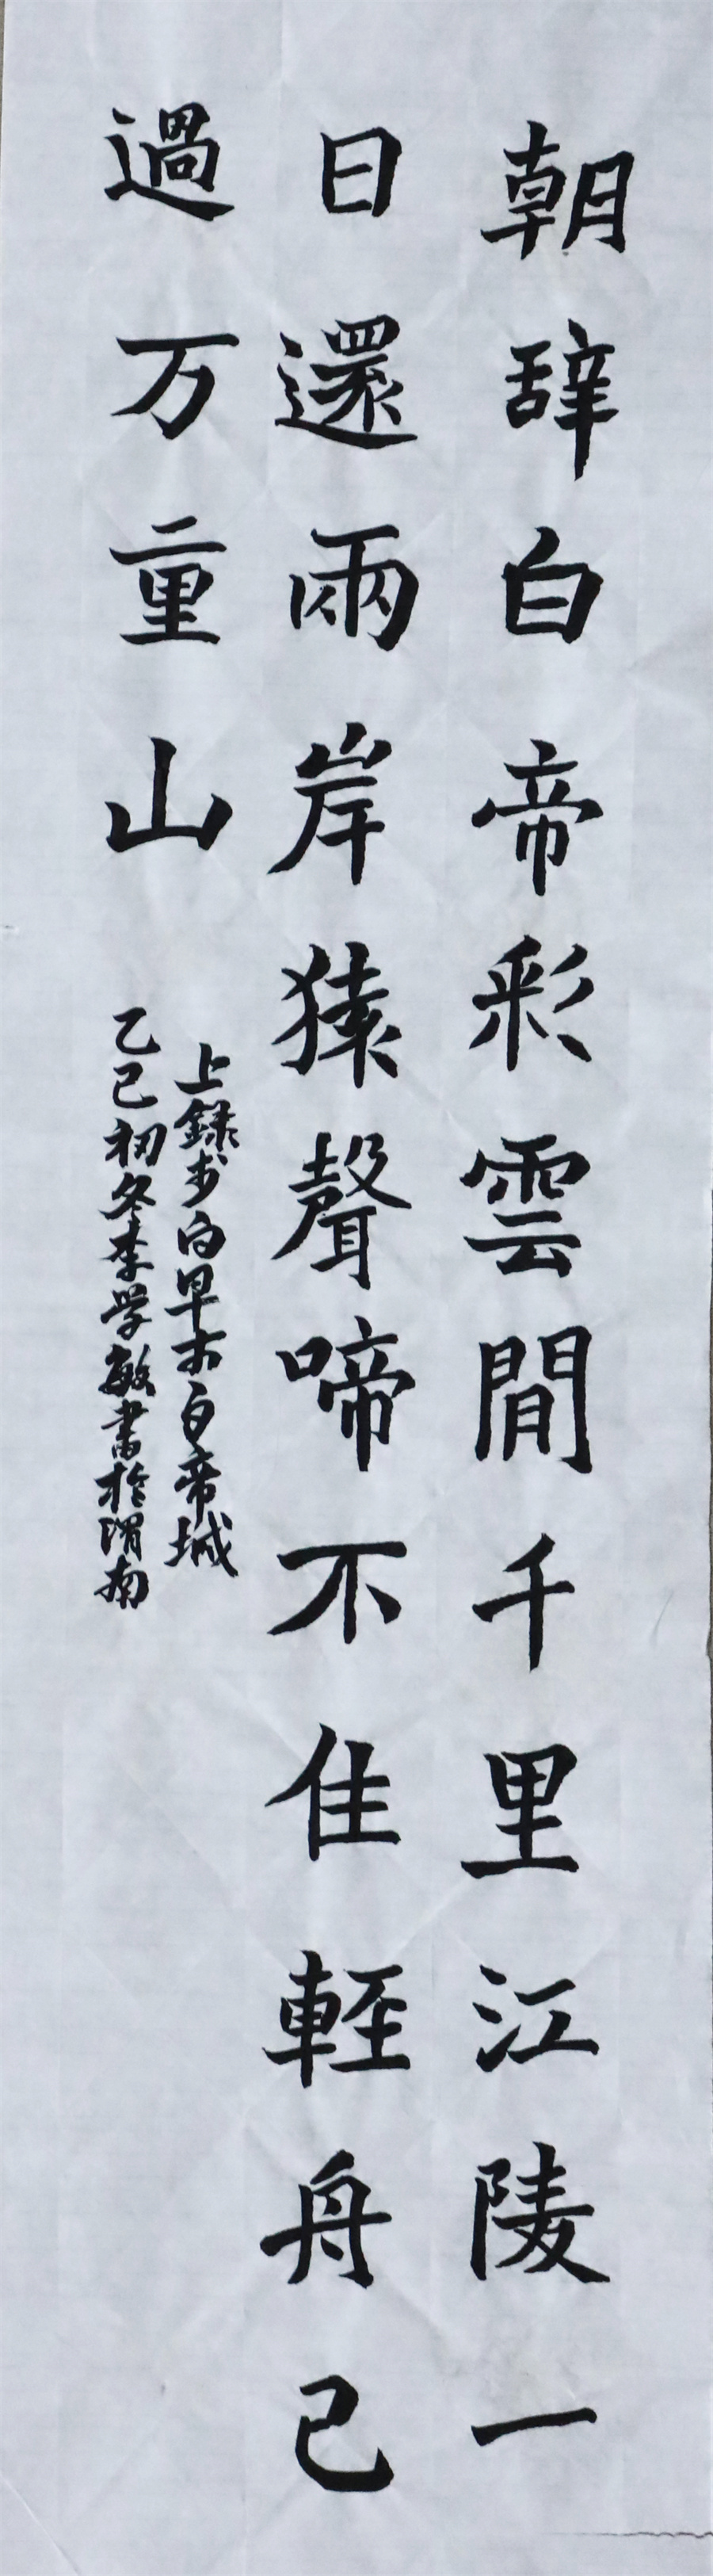 朝辞白帝彩雲間千里江陵一
日還兩岸猿聲啼不住軽舟已
過万重山
上録李白早发白帝城
乙巳初冬李学敏書於渭南